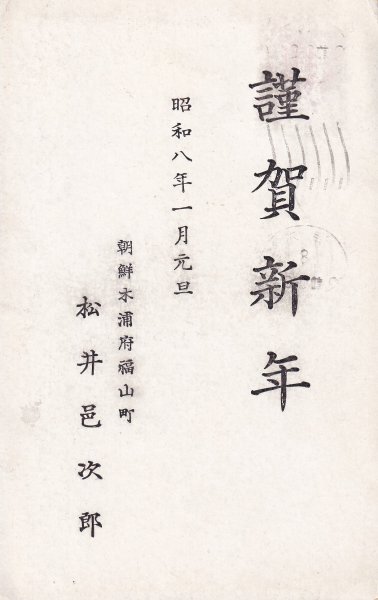 謹賀新年
昭和八年一月元旦
朝鮮木浦府福山町
松井邑次郎